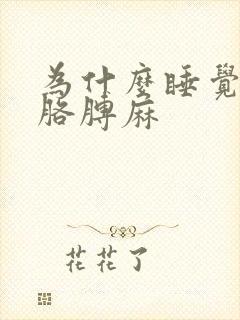 為什麼睡覺
胳膊麻
花花了